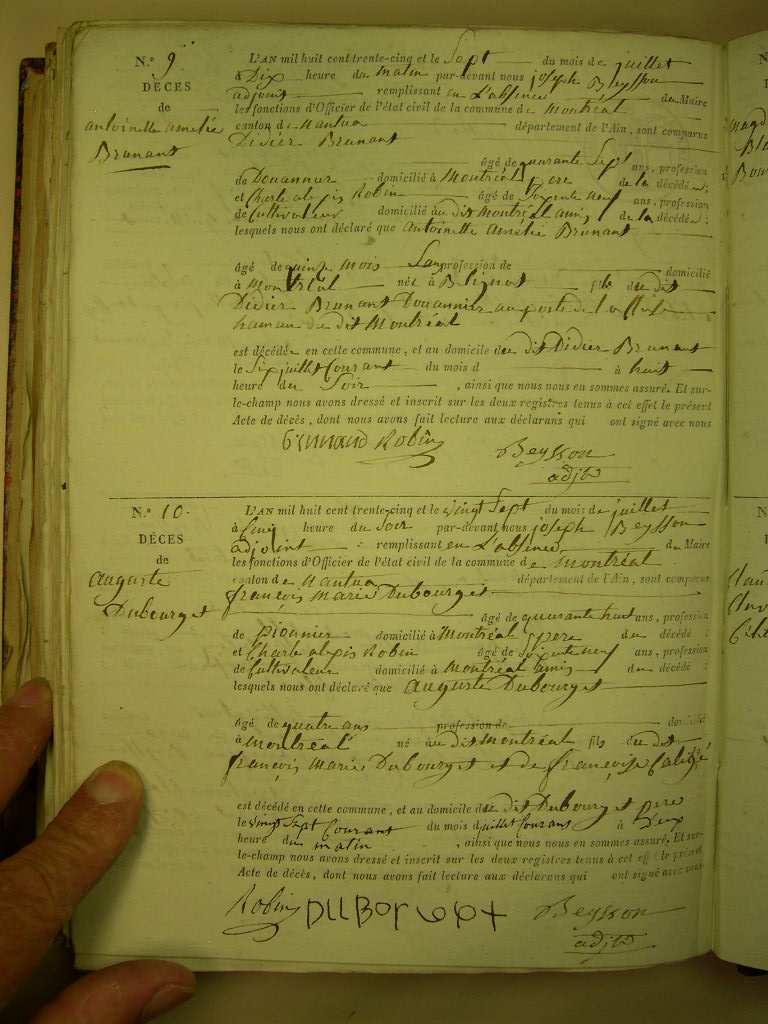 N.º 9.
DÉCES
de
antoinette amelie
Brunant
L'AN mil huit cent trente-cinq et le Sept du mois de juillet
à Dix heure du matin par-devant nous joseph Beysson
adjoint remplissant en L'absence du Maire
les fonctions d'Officier de l'état civil de la commune de Montréal
canton de Nantua département de l'Ain, sont comparus
Didier Brunant
âgé de quarante Sept ans, profession
de Douannier domicilié à Montréal pere de la décédée;
et Charle alexis Robin âgé de Soixente neuf ans, profession
de Cultivateur domicilié au dit Montréal amis de la décédée:
lesquels nous ont déclaré que Antoinette Amélie Brunant
âgé de quinze mois profession de domicilié
à Montréal née à Bélignat fille du dit
Didier Brunant Douannier au poste de
hameau du dit Montréal
est décédée en cette commune, et au domicile du dit Didier Brunant
le Six juillet Courant du mois d à huit
heure du Soir, ainsi que nous nous en sommes assuré. Et sur-
le-champ nous avons dressé et inscrit sur les deux registres tenus à cet effet le présent
Acte de décès, dont nous avons fait lecture aux déclarans qui ont signé avec nous
Robin
Beysson
adjt
N.º 10.
DÉCES
de
Auguste
Dubourget
L'AN mil huit cent trente-cinq et le vingt Sept du mois de juillet
à Cinq heure du Soir par-devant nous joseph Beysson
adjoint remplissant en L'absence du Maire
les fonctions d'Officier de l'état civil de la commune de Montréal
canton de Nantua département de l'Ain, sont comparus
françois Marie Dubourget
âgé de quarante huit ans, profession
de pionnier domicilié à Montréal pere du décédé:
et Charle alexis Robin âgé de Soixente neuf ans, profession
de Cultivateur domicilié à Montréal amis du décédé:
lesquels nous ont déclaré que Auguste Dubourget
âgé de quatre ans profession de domicilié
à Montréal né au dit Montréal fils du dit
françois Marie Dubourget et de françoise
est décédé en cette commune, et au domicile du dit Dubourget pere
le vingt Sept Courant du mois d juillet Courant à Deux
heure du matin, ainsi que nous nous en sommes assuré. Et sur-
le-champ nous avons dressé et inscrit sur les deux registres tenus à cet effet le présent
Acte de décès, dont nous avons fait lecture aux déclarans qui ont signé avec nous
Robin
Beysson
adjt